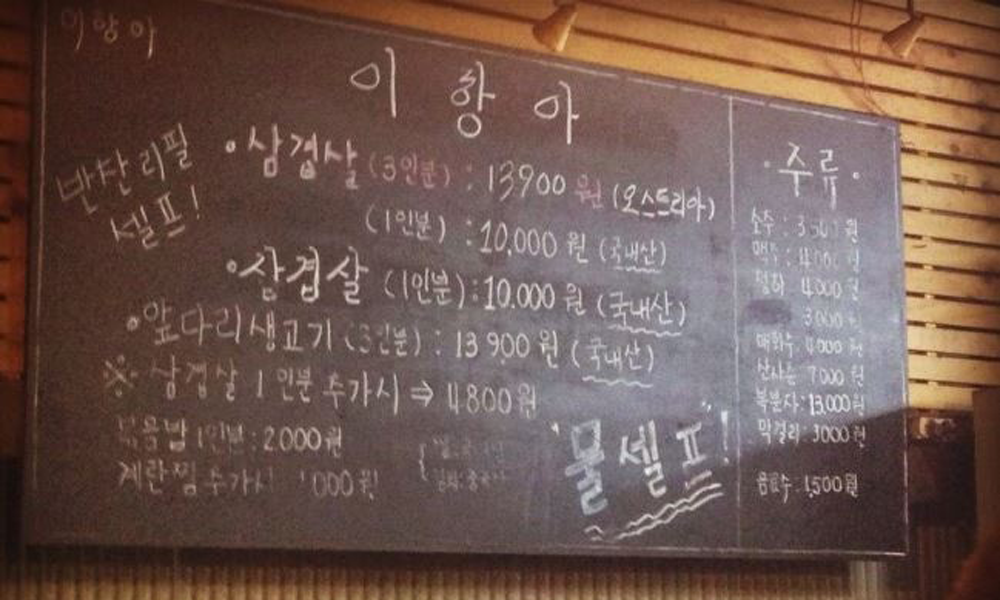 이항아
이 항 아
반찬리필
셀프!
·삼겹살 (3인분) : 13900 원 (오스트리아)
(1인분) : 10,000 원 (국내산)
·삼겹살 (1인분) : 10.000 원 (국내산)
·앞다리생고기 (3인분) : 13 900 원 (국내산)
※ 삼겹살 1 인분 추가시 ⇒ 4800원
볶음밥 1인분 : 2000원
계란찜 추가시 1000원
"물셀프"!
·주류·
소주 : 원
맥주 : 4000 원
청하 4000 원
3000 원
매화수 4000 원
산사춘 7000 원
복분자 : 13,000원
막걸리 : 3000 원
음료수 : 1,500원